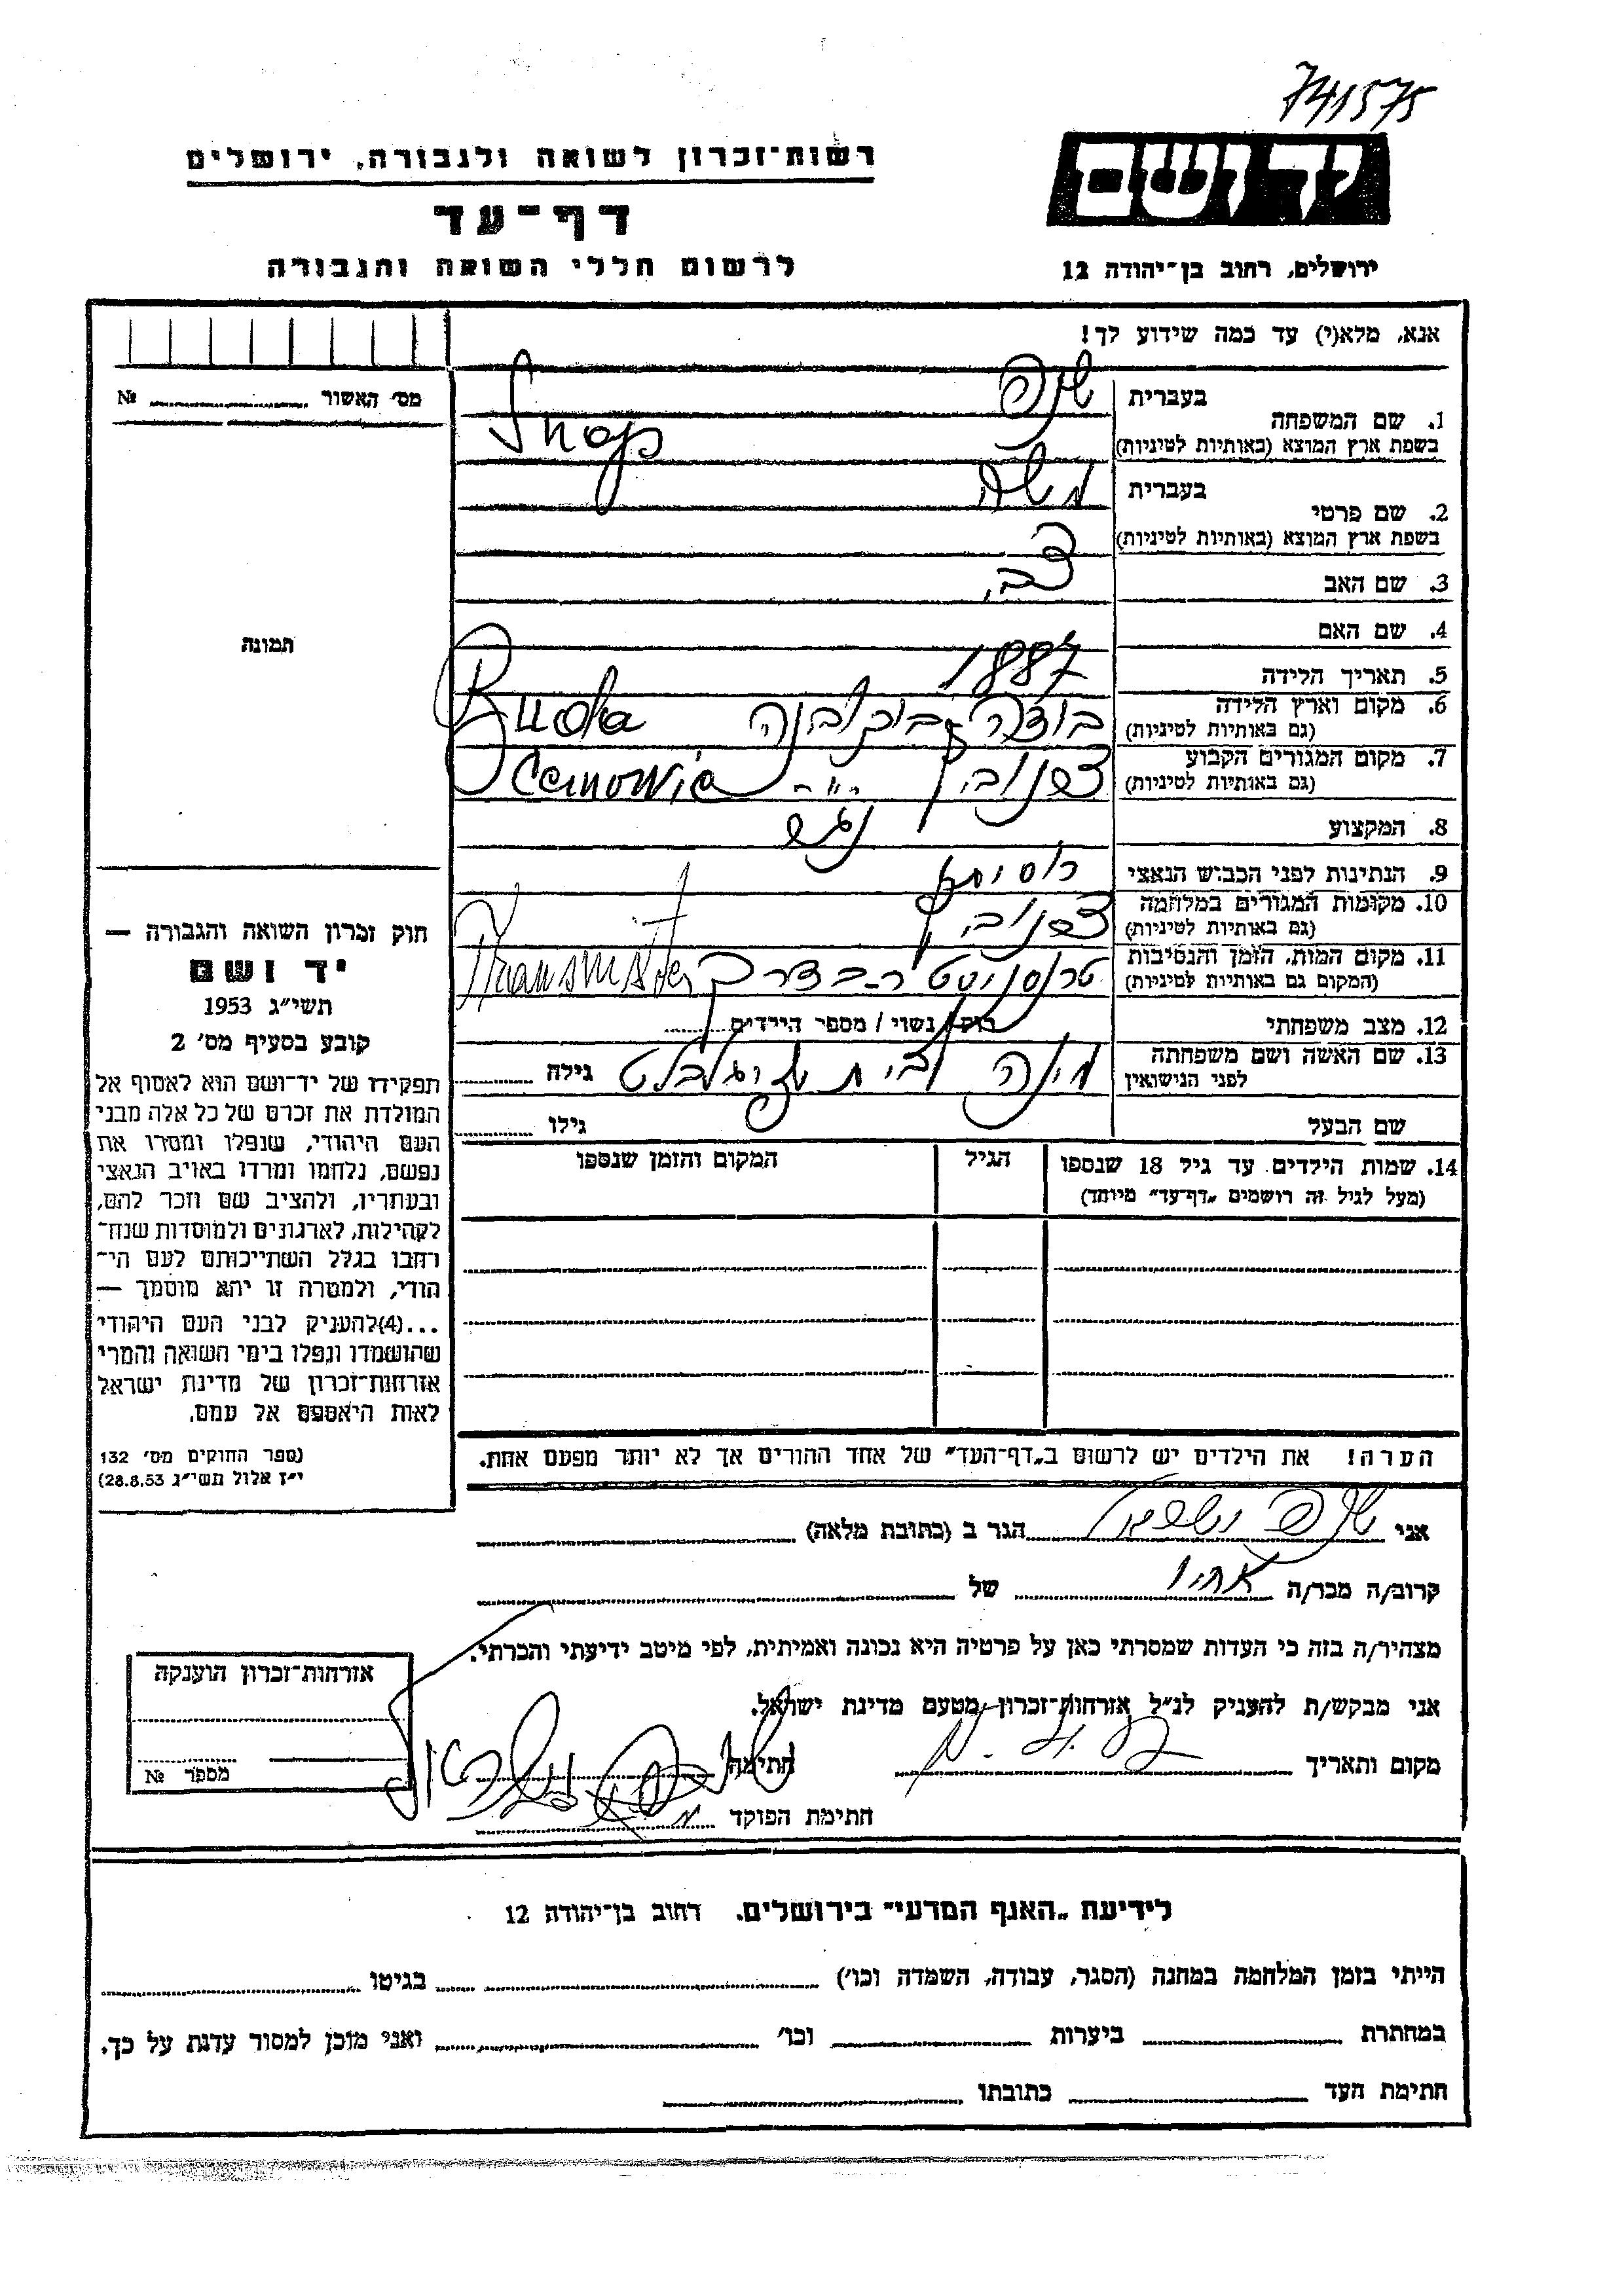 741575
יד ושם
רשות־זכרון לשואה ולגבורה, ירושלים
דף־עד
לרשום חללי השואה והגבורה
ירושלים, רחוב בן־יהודה 12
אנא, מלא(י) עד כמה שידוע לך!
מס׳ האשור № 
1. שם המשפחה
בעברית
בשפת ארץ המוצא (באותיות לטיניות) Snap
2. שם פרטי
בעברית משה
בשפת ארץ המוצא (באותיות לטיניות)
3. שם האב צבי
4. שם האם
5. תאריך הלידה 1887
6. מקום וארץ הלידה
(גם באותיות לטיניות) Buda
7. מקום המגורים הקבוע
(גם באותיות לטיניות)
8. המקצוע
9. הנתינות לפני הכבוש הנאצי
10. מקומות המגורים במלחמה
(גם באותיות לטיניות)
11. מקום המות, הזמן והנסיבות
(המקום גם באותיות לטיניות) בדרך
12. מצב משפחתי רוק / נשוי / מספר הילדים
13. שם האשה ושם משפחתה
לפני הנישואין
לבית גילה
שם הבעל גילו
14. שמות הילדים עד גיל 18 שנספו
(מעל לגיל זה רושמים „דף־עד״ מיוחד)
הגיל
המקום והזמן שנספו
תמונה
חוק זכרון השואה והגבורה —
יד ושם
תשי״ג 1953
קובע בסעיף מס׳ 2
תפקידו של יד־ושם הוא לאסוף אל
המולדת את זכרם של כל אלה מבני
העם היהודי, שנפלו ומסרו את
נפשם, נלחמו ומרדו באויב הנאצי
ובעוזריו, ולהציב שם וזכר להם,
לקהילות, לארגונים ולמוסדות שנח־
רבו בגלל השתייכותם לעם הי־
הודי, ולמטרה זו יהא מוסמך —
...(4) להעניק לבני העם היהודי
שהושמדו ונפלו בימי השואה והמרי
אזרחות־זכרון של מדינת ישראל
לאות היאספם אל עמם.
(ספר החוקים מס׳ 132
י״ז אלול תשי״ג 28.8.53)
הערה! את הילדים יש לרשום ב„דף־העד״ של אחד ההורים אך לא יותר מפעם אחת.
אני הגר ב (כתובת מלאה)
קרוב/ה מכר/ה אחיו של
מצהיר/ה בזה כי העדות שמסרתי כאן על פרטיה היא נכונה ואמיתית, לפי מיטב ידיעתי והכרתי.
אני מבקש/ת להעניק לנ״ל אזרחות־זכרון מטעם מדינת ישראל.
מקום ותאריך חתימה
חתימת הפוקד
אזרחות־זכרון הוענקה
מספר №
לידיעת „האגף המדעי״ בירושלים. רחוב בן־יהודה 12
הייתי בזמן המלחמה במחנה (הסגר, עבודה, השמדה וכו׳) בגיטו
במחתרת ביערות וכו׳ ואני מוכן למסור עדות על כך.
חתימת העד כתובתו